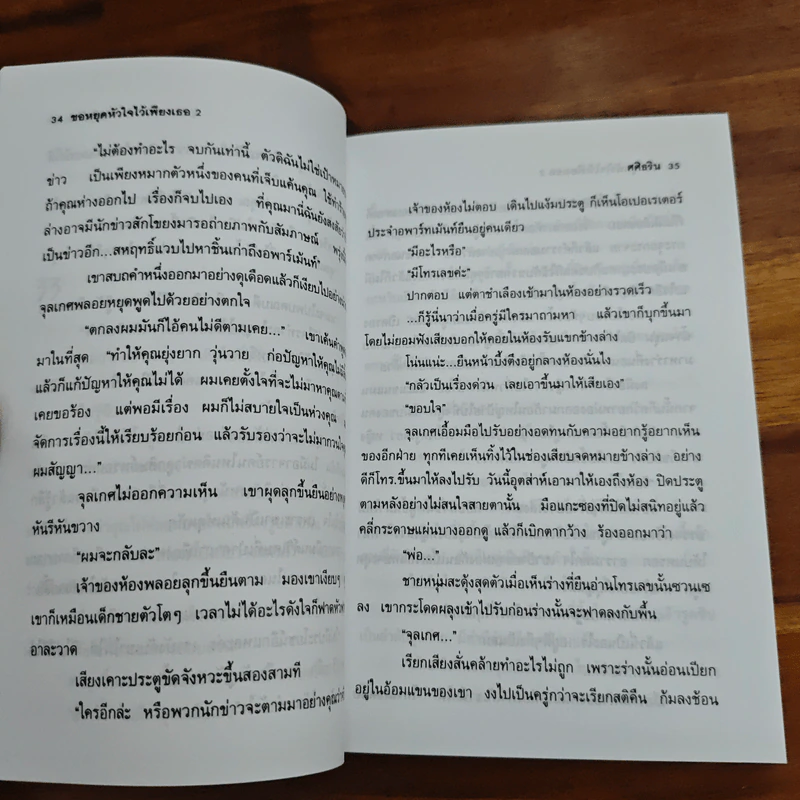 34 ขอหยุดหัวใจไว้เพียงเธอ 2
"ไม่ต้องทำอะไร จบกันเท่านี้ ตัวดิฉันไม่ใช่เป้าหมาย
ข่าว เป็นเพียงหมากตัวหนึ่งของคนที่เจ็บแค้นคุณ ใช้ทำร้าย
ถ้าคุณห่างออกไป เรื่องก็จบไปเอง ที่คุณมานี่ฉันยังสงสัย
ล่างอาจมีนักข่าวสักโขยงมารอถ่ายภาพกับสัมภาษณ์ พรุ่งนี้
เป็นข่าวอีก...สหฤทธิ์แวบไปหาชิ้นเก่าถึงอพาร์เม้นท์"
เขาสบถคำหนึ่งออกมาอย่างดุเดือดแล้วก็เงียบไป
จุลเกศพลอยหยุดพูดไปด้วยอย่างตกใจ
"ตกลงผมมันก็ไอ้คนไม่ดีตามเคย..." เขาเค้นคำพูด
มาในที่สุด "ทำให้คุณยุ่งยาก วุ่นวาย ก่อปัญหาให้คุณ
แล้วก็แก้ปัญหาให้คุณไม่ได้ ผมเคยตั้งใจที่จะไม่มาหาคุณ
เคยขอร้อง แต่พอมีเรื่อง ผมก็ไม่สบายใจเป็นห่วงคุณ
จัดการเรื่องนี้ให้เรียบร้อยก่อน แล้วรับรองว่าจะไม่มากวนใจ
ผมสัญญา..."
จุลเกศไม่ออกความเห็น เขาผุดลุกขึ้นยืนอย่าง
หันรีหันขวาง
"ผมจะกลับละ"
เจ้าของห้องพลอยลุกขึ้นยืนตาม มองเขาเงียบๆ
เขาก็เหมือนเด็กชายตัวโตๆ เวลาไม่ได้อะไรดังใจก็ฟาดหัว
อาละวาด
เสียงเคาะประตูขัดจังหวะขึ้นสองสามที
"ใครอีกล่ะ หรือพวกนักข่าวจะตามมาอย่างคุณว่า
ศศิธริน 35
เจ้าของห้องไม่ตอบ เดินไปแง้มประตู ก็เห็นโอเปอเรเตอร์
ประจำอพาร์ทเม้นท์ยืนอยู่คนเดียว
"มีอะไรหรือ"
"มีโทรเลขค่ะ"
ปากตอบ แต่ตาชำเลืองเข้ามาในห้องอย่างรวดเร็ว
...ก็รู้นี่นาว่าเมื่อครู่มีใครมาถามหา แล้วเขาก็บุกขึ้นมา
โดยไม่ยอมฟังเสียงบอกให้คอยในห้องรับแขกข้างล่าง
โน่นแน่ะ...ยืนหน้าบึ้งตึงอยู่กลางห้องนั่นไง
"กลัวเป็นเรื่องด่วน เลยเอาขึ้นมาให้เสียเอง"
"ขอบใจ"
จุลเกศเอื้อมมือไปรับอย่างอดทนกับความอยากรู้อยากเห็น
ของอีกฝ่าย ทุกทีเคยเห็นทิ้งไว้ในช่องเสียบจดหมายข้างล่าง อย่าง
ดีก็โทร.ขึ้นมาให้ลงไปรับ วันนี้อุตส่าห์เอามาให้เองถึงห้อง ปิดประตู
ตามหลังอย่างไม่สนใจสายตานั้น มือแกะซองที่ปิดไม่สนิทอยู่แล้ว
คลี่กระดาษแผ่นบางออกดู แล้วก็เบิกตากว้าง ร้องออกมาว่า
"พ่อ..."
ชายหนุ่มสะดุ้งสุดตัวเมื่อเห็นร่างที่ยืนอ่านโทรเลขนั้นซวนเซ
ลง เขากระโดดผลุงเข้าไปรับก่อนร่างนั้นจะฟาดลงกับพื้น
"จุลเกศ..."
เรียกเสียงสั่นคล้ายทำอะไรไม่ถูก เพราะร่างนั้นอ่อนเปียก
อยู่ในอ้อมแขนของเขา งงไปเป็นครู่กว่าจะเรียกสติคืน ก้มลงช้อน